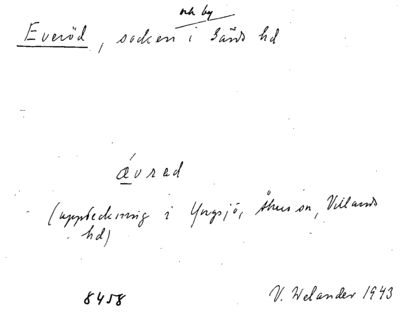 och by
Everöd, socken i Gärds hd
ávrad
(uppteckning i Yngsjö, Åhus sn, Villands
hd)
8458
V. Welander 1943